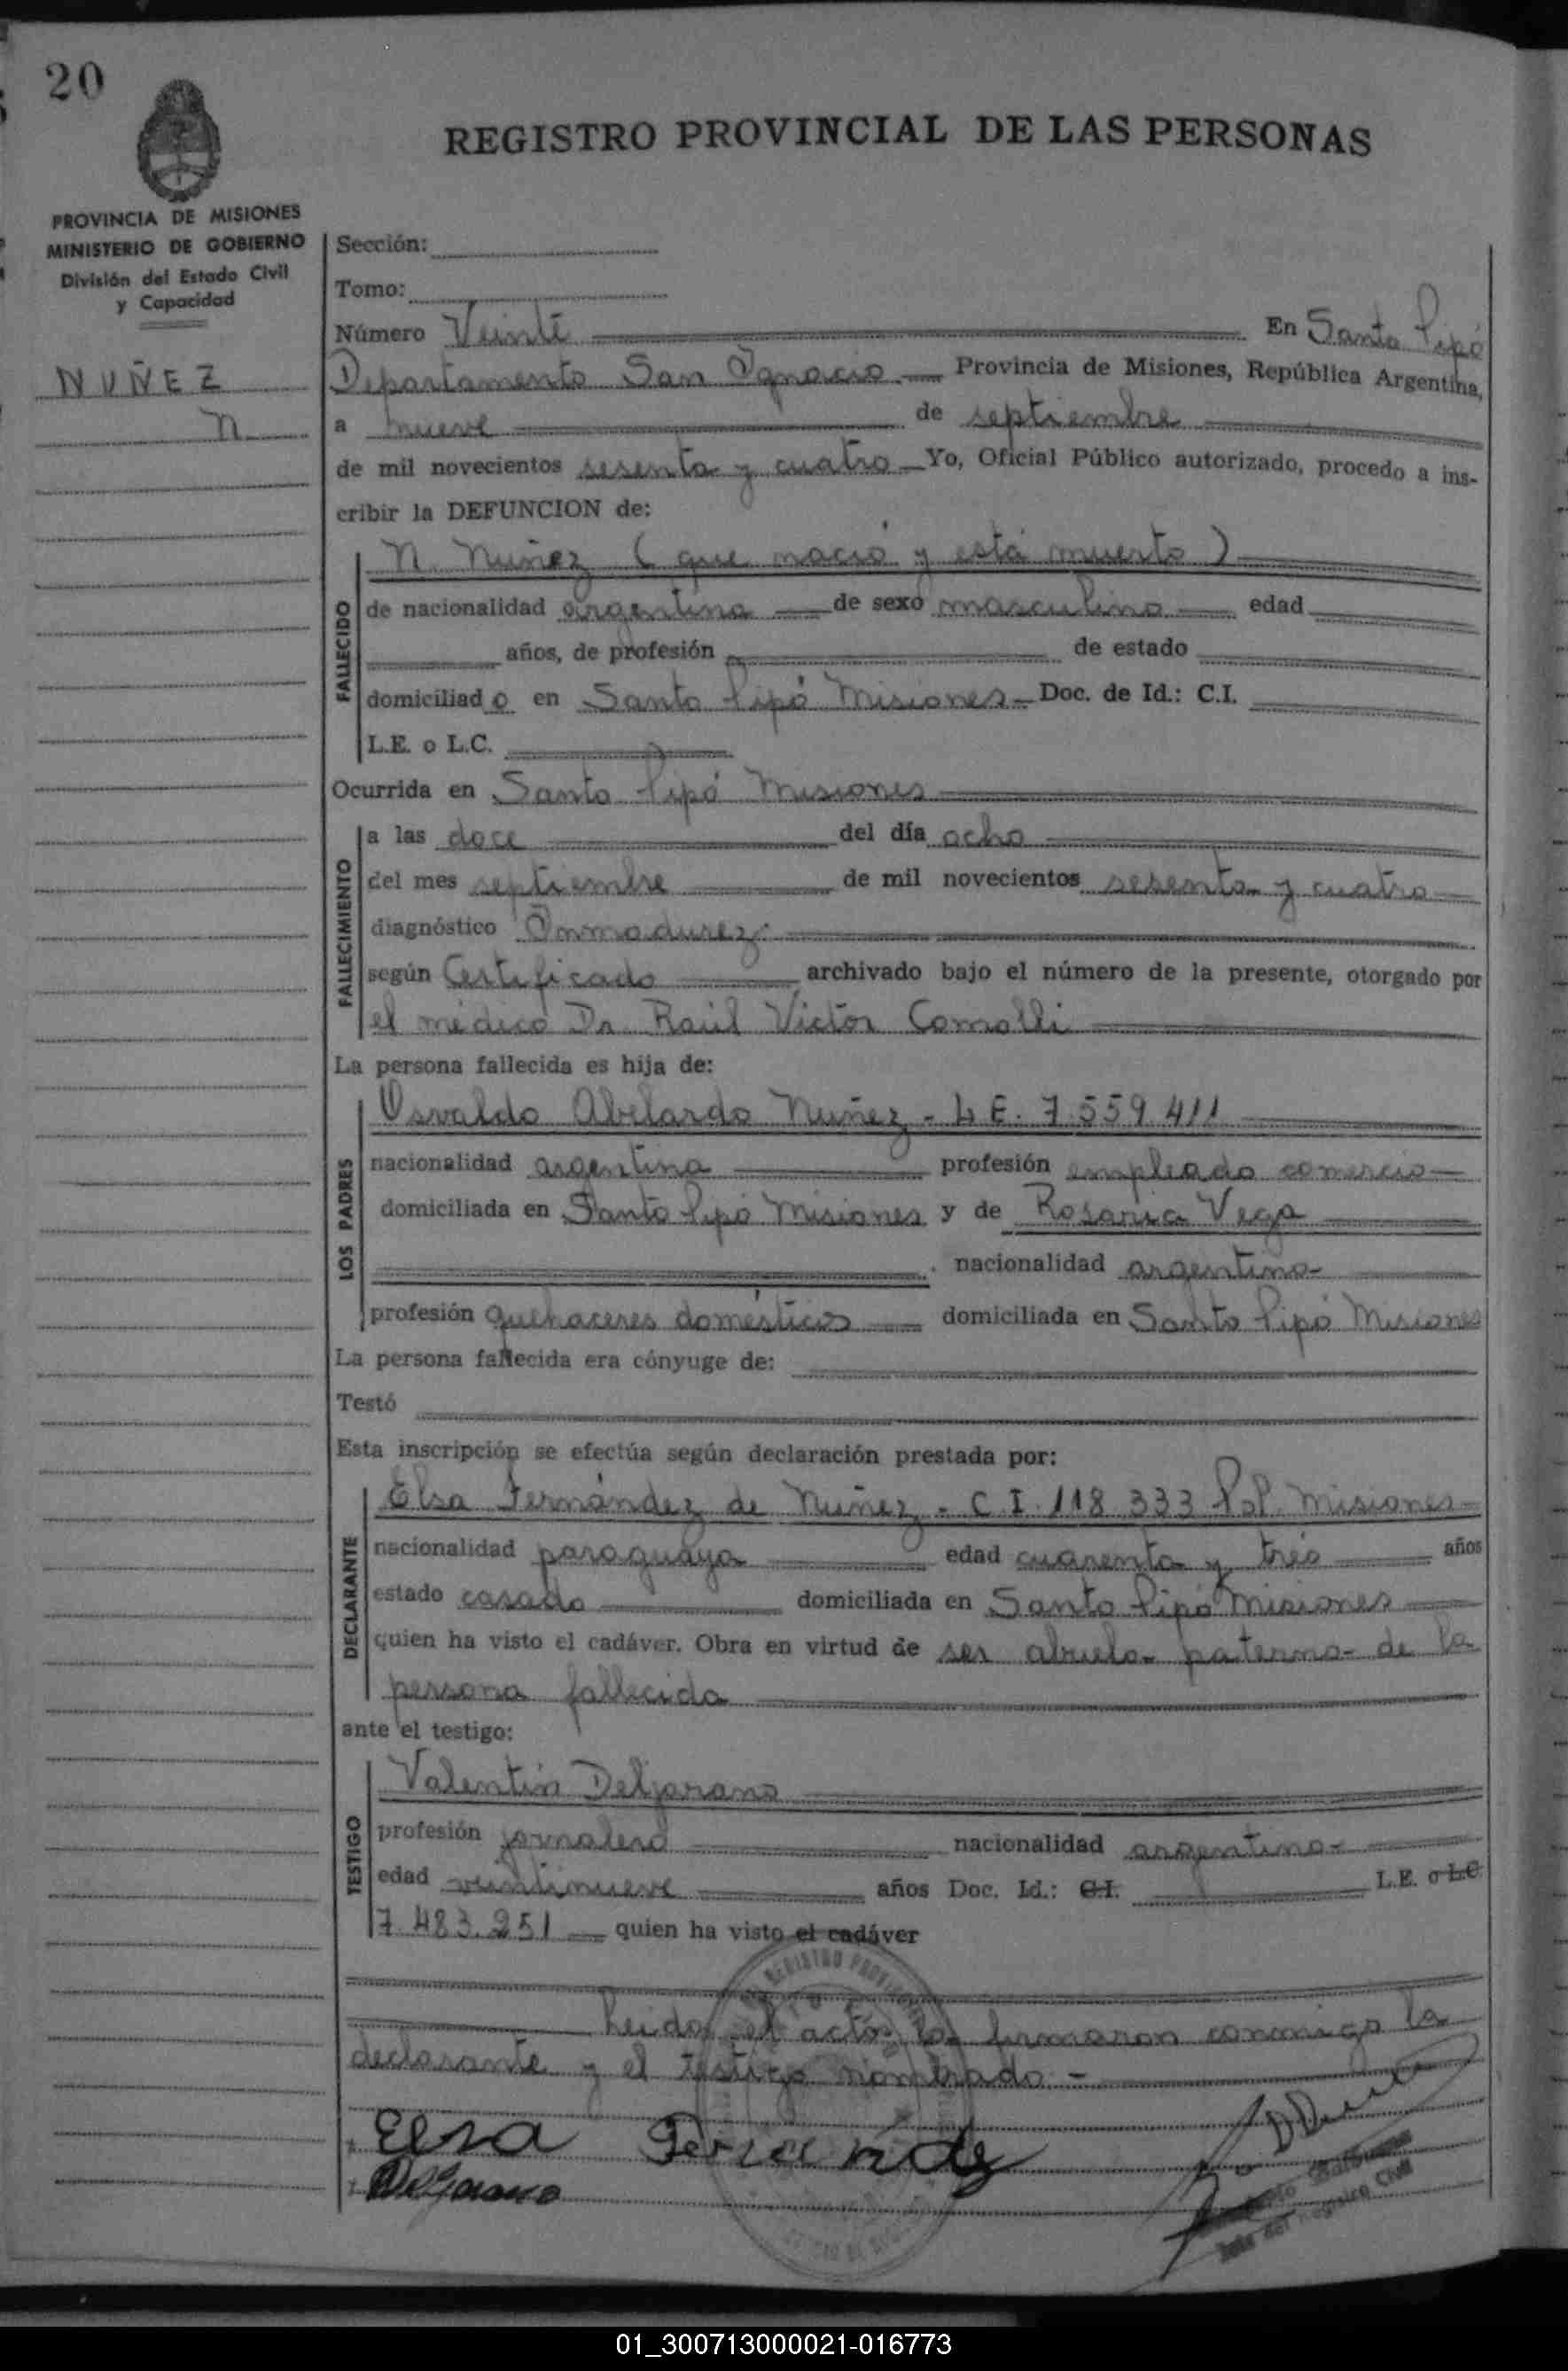 20
REGISTRO PROVINCIAL DE LAS PERSONAS
PROVINCIA DE MISIONES
MINISTERIO DE GOBIERNO
División del Estado Civil
y Capacidad
NUÑEZ
N.
Sección:
Tomo:
Número Veinte En Santo Pipó
Departamento San Ignacio Provincia de Misiones, República Argentina,
a nueve de septiembre
de mil novecientos sesenta y cuatro Yo, Oficial Público autorizado, procedo a ins-
cribir la DEFUNCION de:
FALLECIDO
N. Nuñez ( que nació y está muerto )
de nacionalidad argentina de sexo masculino edad
años, de profesión de estado
domiciliado en Santo Pipó Misiones Doc. de Id.: C.I.
L.E. o L.C.
Ocurrida en Santo Pipó Misiones
FALLECIMIENTO
a las doce del día ocho
del mes septiembre de mil novecientos sesenta y cuatro
diagnóstico Inmadurez.
según Certificado archivado bajo el número de la presente, otorgado por
el médico Dr. Raúl Victor Comolli
La persona fallecida es hija de:
LOS PADRES
Osvaldo Abelardo Nuñez - L.E. 7.559.411
nacionalidad argentina profesión empleado comercio
domiciliada en Santo Pipó Misiones y de Rosaria Vega
nacionalidad argentina
profesión quehaceres domésticos domiciliada en Santo Pipó Misiones
La persona fallecida era cónyuge de:
Testó
Esta inscripción se efectúa según declaración prestada por:
DECLARANTE
Elsa Fernández de Nuñez - C.I. 118.333 Pol. Misiones
nacionalidad paraguaya edad cuarenta y tres años
estado casada domiciliada en Santo Pipó Misiones
quien ha visto el cadáver. Obra en virtud de ser abuela paterna de la
persona fallecida
ante el testigo:
TESTIGO
Valentín
profesión jornalero nacionalidad argentina
edad veintinueve años Doc. Id.: C.I. L.E. o L.C
7.483.251 quien ha visto el cadáver
REGISTRO
Leida el acta, la firmaron conmigo la
declarante y el testigo nombrado -
Elsa Fernandez
Registro Civil
01_300713000021-016773